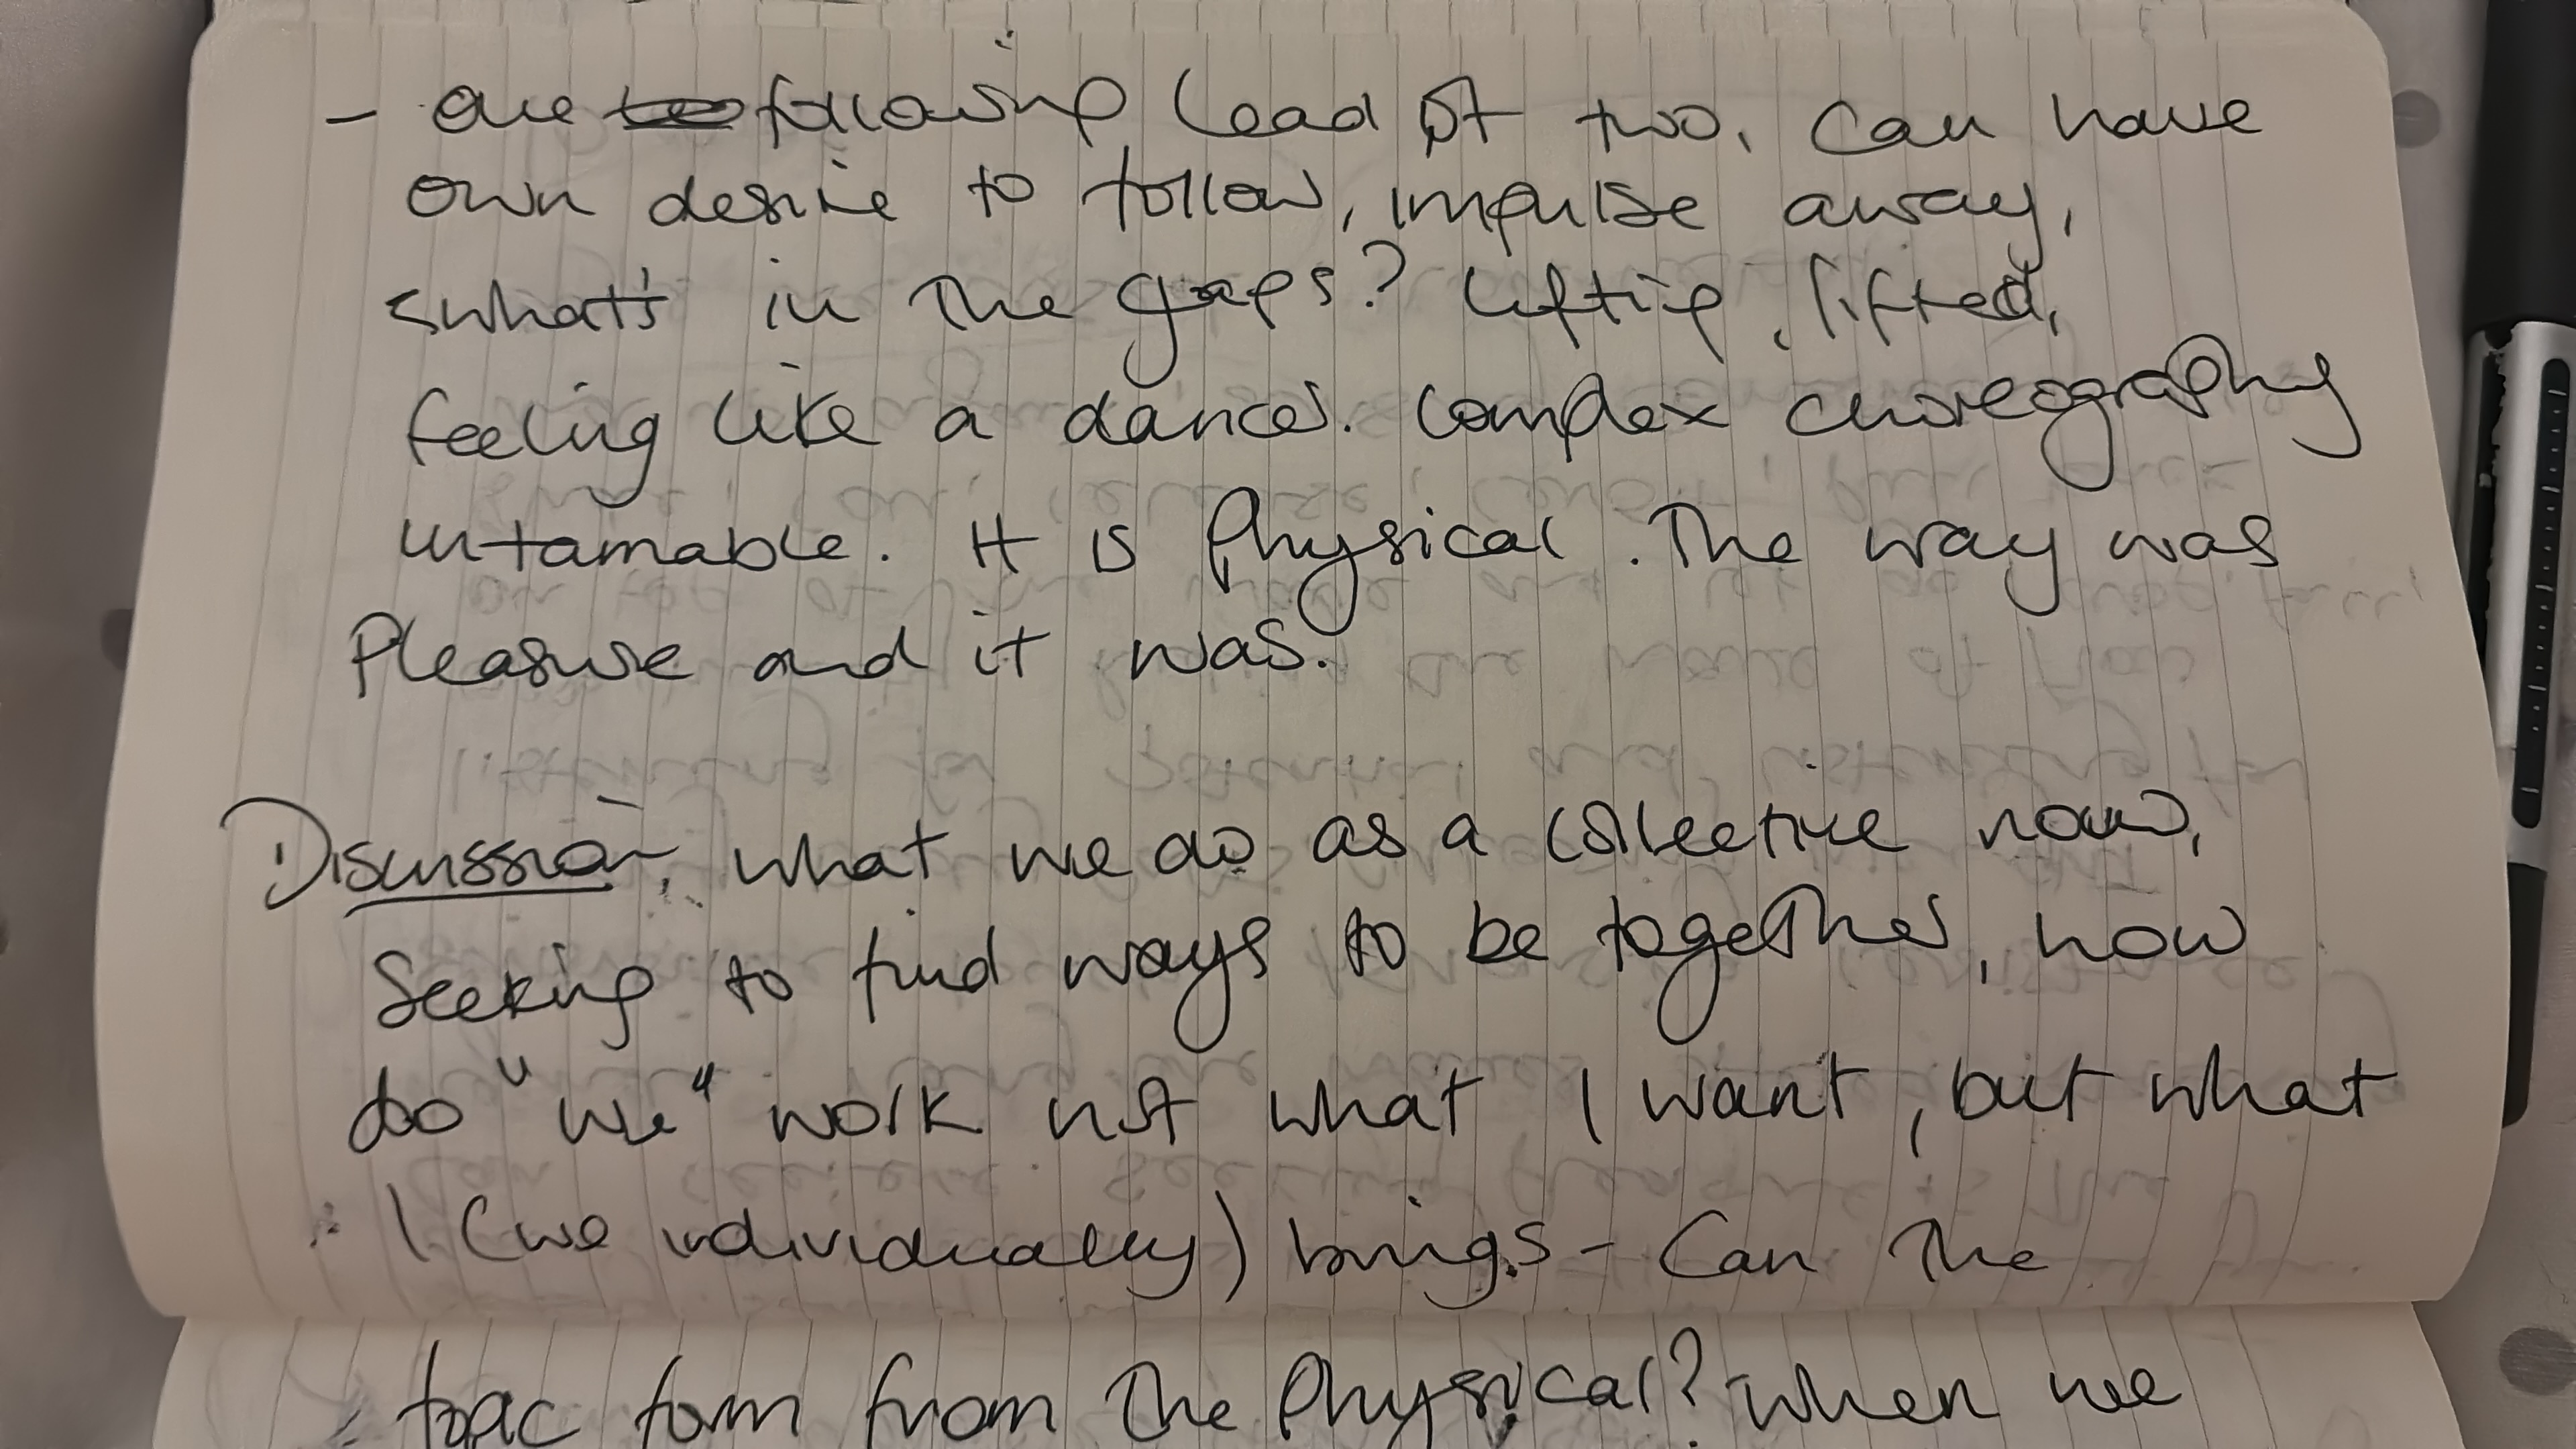 - one following lead of two, can have
own desire to follow, impulse away,
what's in the gaps? Lifting, lifted,
feeling like a dancer. Complex choreography
untamable. It is physical. The way was
pleasure and it was.
Discussion, what we do as a collective now,
seeking to find ways to be together, how
do "we" work not what I want, but what
I (we individually) brings - Can the
topic form from the physical? When we